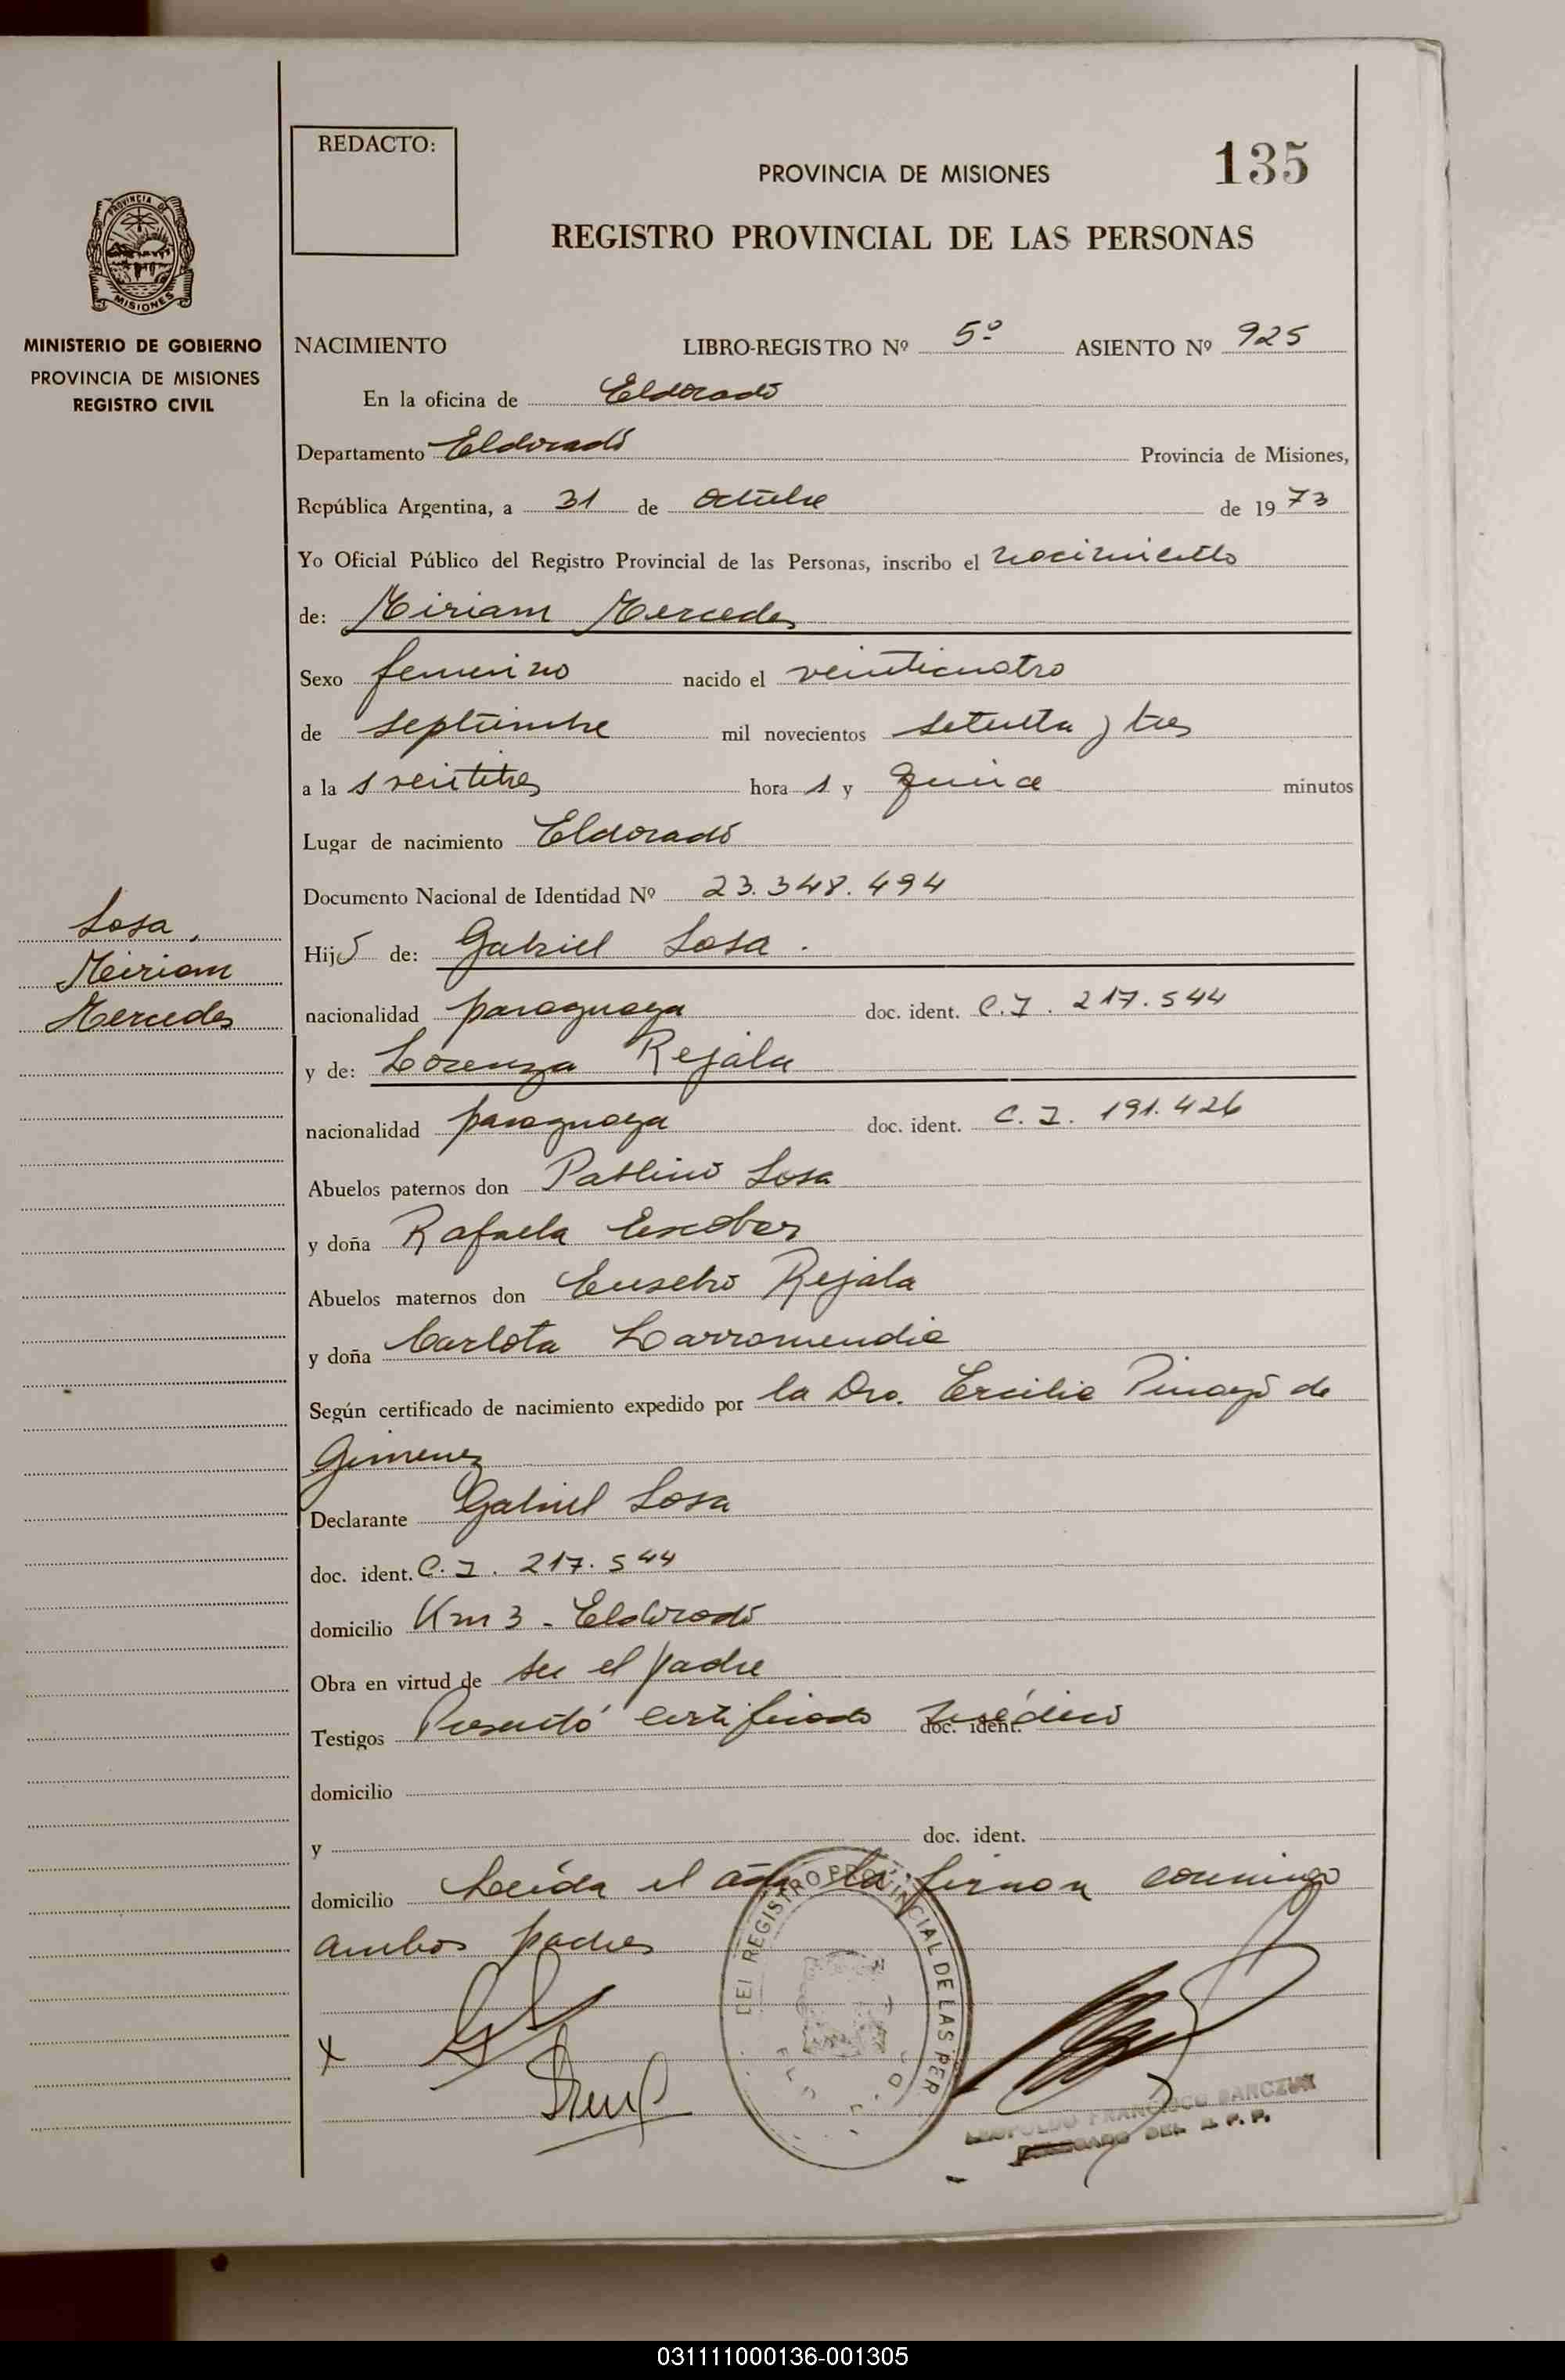 REDACTO:
PROVINCIA DE MISIONES
135
REGISTRO PROVINCIAL DE LAS PERSONAS
PROVINCIA DE
MISIONES
MINISTERIO DE GOBIERNO
PROVINCIA DE MISIONES
REGISTRO CIVIL
NACIMIENTO LIBRO-REGISTRO Nº 5º ASIENTO Nº 925
En la oficina de Eldorado
Departamento Eldorado Provincia de Misiones,
República Argentina, a 31 de octubre de 1973
Yo Oficial Público del Registro Provincial de las Personas, inscribo el nacimiento
de: Miriam Mercedes
Sexo femenino nacido el veinticuatro
de septiembre mil novecientos setenta y tres
a las veintitres horas y quince minutos
Lugar de nacimiento Eldorado
Documento Nacional de Identidad Nº 23.348.494
Losa,
Miriam
Mercedes
Hijo de: Gabriel Losa.
nacionalidad paraguaya doc. ident. C.I. 217.544
y de: Lorenza Rejala
nacionalidad paraguaya doc. ident. C.I. 191.426
Abuelos paternos don Pablino Losa
y doña Rafaela Escobar
Abuelos maternos don Eusebio Rejala
y doña Carlota Larromendia
Según certificado de nacimiento expedido por la Dra. Ercilia de
Gimenez
Declarante Gabriel Losa
doc. ident. C.I. 217.544
domicilio Km 3 - Eldorado
Obra en virtud de ser el padre
Testigos Presentó certificado médico doc. ident.
domicilio
y doc. ident.
domicilio Leída el acta la firman conmigo
ambos padres
DEL REGISTRO PROVINCIAL DE LAS PER
x
LEOPOLDO FRANCISCO
DEL R. P. P.
031111000136-001305